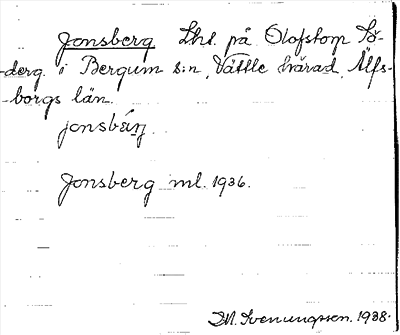 Jonsberg Lht. på Olofstorp Sö-
derg. i Bergum s:n, Vättle härad, Älfs-
-borgs län.
jonsbáŋ.
Jonsberg ml. 1936.
M. Svenungsson. 1938.